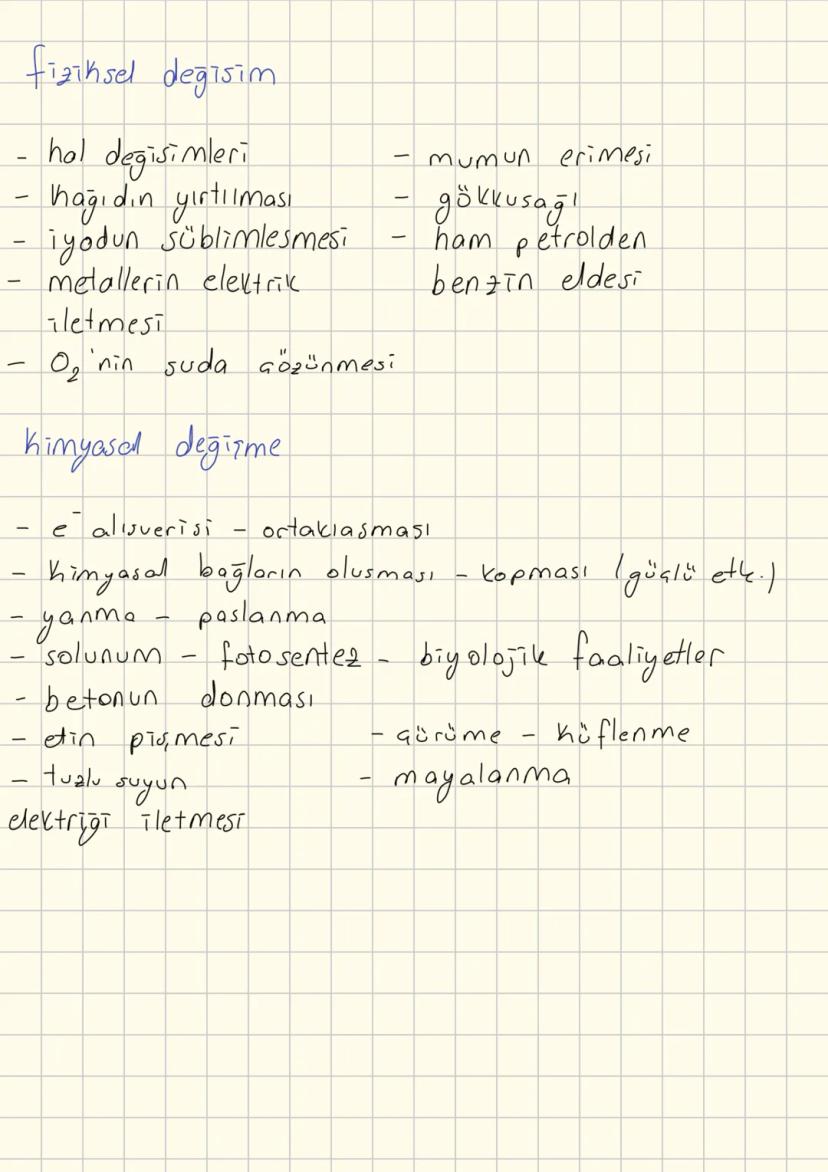 fiziksel değisim
- hal değisimleri
- kağıdın yırtılması
- iyodun süblimlesmesi
- metallerin elektrik
iletmesi
- O₂'nin suda çözünmesi
- mumun erimesi
- gökkusağı
- ham petrolden
benzin eldesi
kimyasal değişme
- e⁻ alısverisi - ortaklasması
- kimyasal bağların olusması - kopması (güçlü etk.)
- yanma - paslanma
- solunum - fotosentez - biyolojik faaliyetler
- betonun donması
- etin pişmesi
- tuzlu suyun
elektriği iletmesi
- çürüme - küflenme
- mayalanma